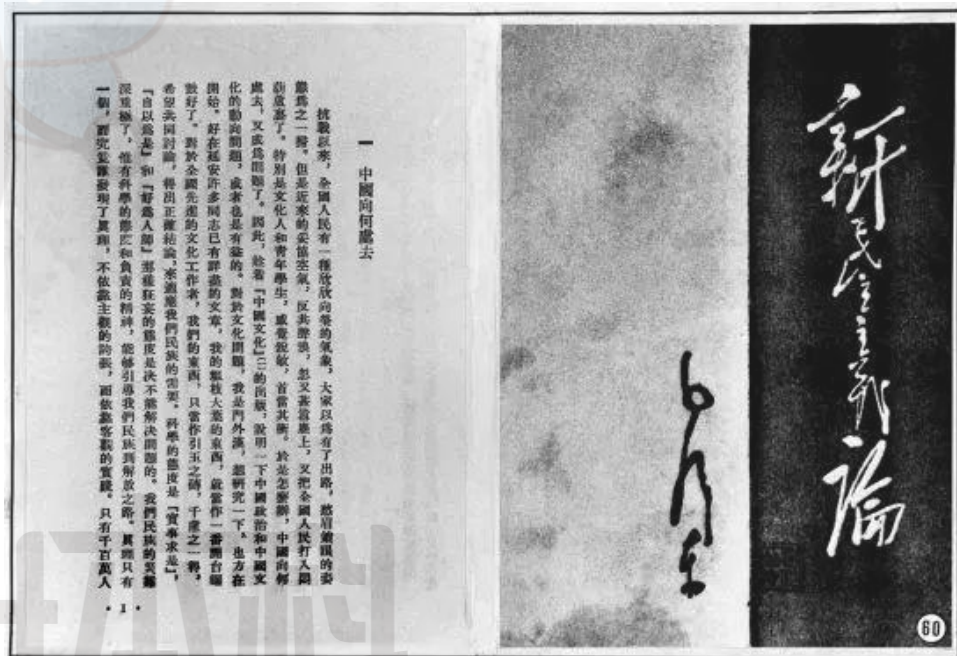 新民主主義論
毛澤東
60
一 中國向何處去
抗戰以來，全國人民有一種欣欣向榮的氣象，大家以爲有了出路，愁眉鎖眼的姿
態爲之一掃。但是近來的妥協空氣，反共聲浪，忽又甚囂塵上，又把全國人民打入悶
葫蘆裏了。特別是文化人和青年學生，感覺銳敏，首當其衝。於是怎麼辦，中國向何
處去，又成爲問題了。因此，趁着『中國文化』〔一〕的出版，說明一下中國政治和中國文
化的動向問題，或者也是有益的。對於文化問題，我是門外漢，想研究一下，也方在
開始。好在延安許多同志已有詳盡的文章，我的粗枝大葉的東西，就當作一番開台鑼
鼓好了。對於全國先進的文化工作者，我們的東西，只當作引玉之磚，千慮之一得，
希望共同討論，得出正確結論，來適應我們民族的需要。科學的態度是『實事求是』，
『自以爲是』和『好爲人師』那樣狂妄的態度是決不能解決問題的。我們民族的災難
深重極了，惟有科學的態度和負責的精神，能够引導我們民族到解放之路。眞理只有
一個，而究竟誰發現了眞理，不依靠主觀的誇張，而依靠客觀的實踐。只有千百萬人
• 1 •